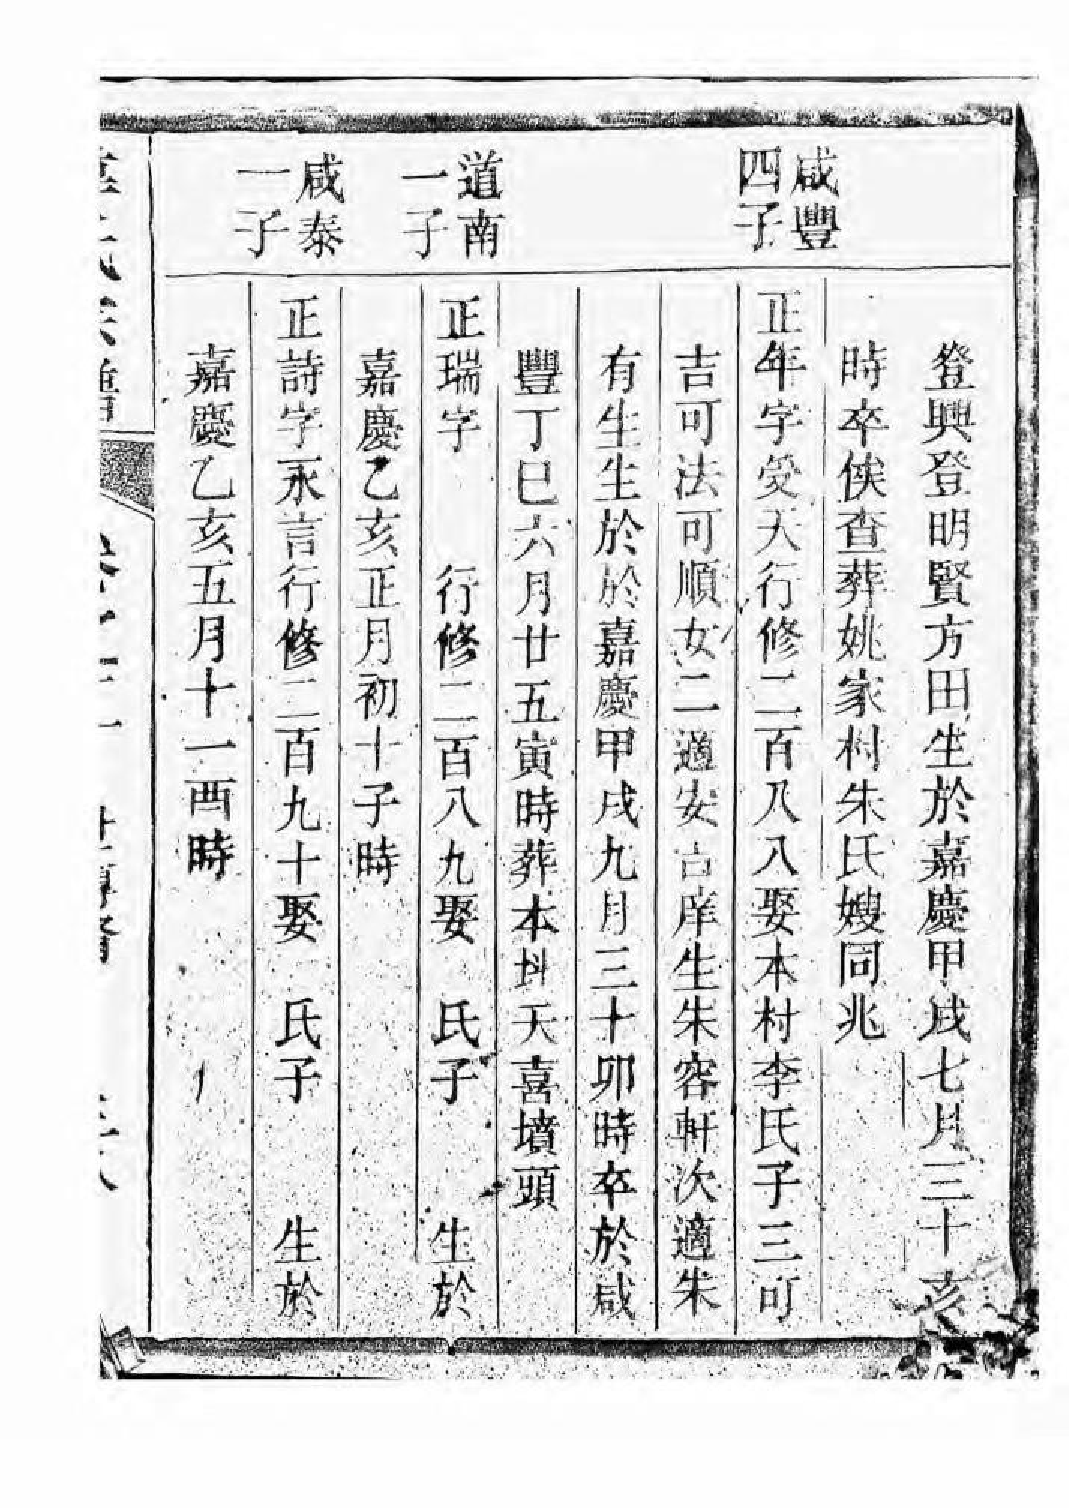 登興登明賢方田生於嘉慶甲戌七月三十亥
時卒俟查葬姚家村朱氏嫂同兆
咸豐
四子
正年字受天行修二百八八娶本村李氏子三可
吉可法可順女二適安吉庠生朱容軒次適朱
有生生於於嘉慶甲戌九月三十卯時卒於咸
豐丁巳六月廿五寅時葬本抖天喜墳頭
道南
一子
正瑞字 行修二百八九娶 氏子 生於
嘉慶乙亥正月初十子時
咸泰
一子
正詩字永言行修二百九十娶 氏子 生於
嘉慶乙亥五月十一酉時